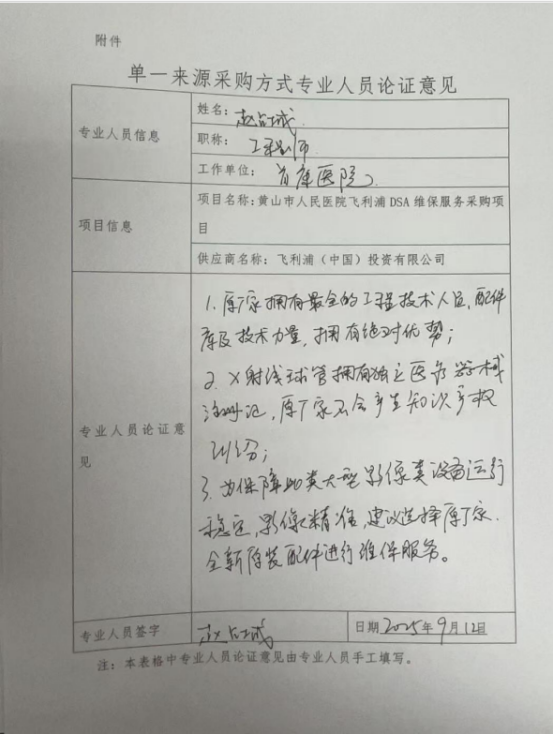 附件
单一来源采购方式专业人员论证意见
专业人员信息
姓名：赵占城
职称：工程师
工作单位：首康医院
项目信息
项目名称：黄山市人民医院飞利浦 DSA 维保服务采购项
目
供应商名称：飞利浦（中国）投资有限公司
专业人员论证意
见
1. 原厂家拥有最全的工程技术人员，配件
库及技术力量，拥有绝对优势；
2. X射线球管拥有独立医疗器械
注册证，原厂家不会产生知识产权
纠纷；
3. 为保障此类大型影像类设备运行
稳定，影像精准，建议选择原厂家
全新原装配件进行维保服务。
专业人员签字
赵占城
日期 2025年9月12日
注：本表格中专业人员论证意见由专业人员手工填写。